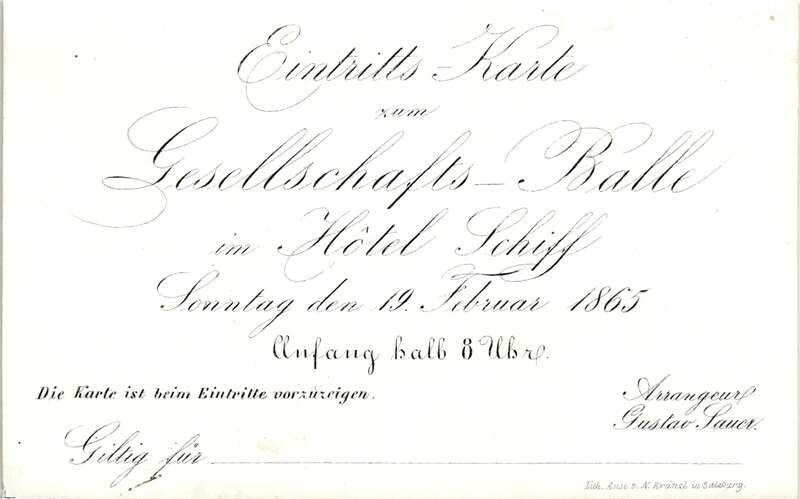 Eintritts-Karte
zum
Gesellschafts-Balle
im Hôtel Schiff
Sonntag den 19. Februar 1865
Anfang halb 8 Uhr.
Die Karte ist beim Eintritte vorzuzeigen.
Arrangeur
Gustav Sauer.
Giltig für
Lith. Anst. v. N. Kränzl in Salzburg.